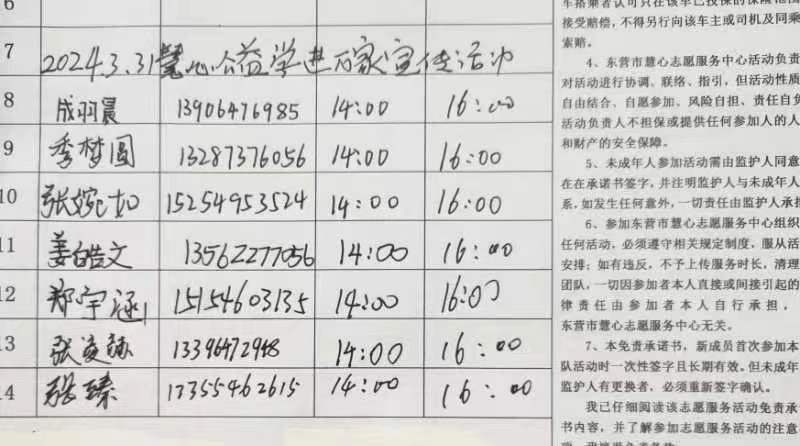 6
7 2024.3.31慧心公益学进万家宣传活动
8 成羽晨 13906476985 14:00 16:00
9 季梦圆 13287376056 14:00 16:00
10 张婉如 15254953524 14:00 16:00
11 姜皓文 13562277056 14:00 16:00
12 郑宇涵 15154603135 14:00 16:00
13 张凌赫 13396472948 14:00 16:00
14 张臻 13355462615 14:00 16:00
车搭乘者认可只在该车已投保的保险范围
接受赔偿，不得另行向该车主或司机及同乘
索赔。
4、东营市慧心志愿服务中心活动负责
对活动进行协调、联络、指引，但活动性质
自由结合、自愿参加、风险自担、责任自负
活动负责人不担保或提供任何参加人的人
和财产的安全保障。
5、未成年人参加活动需由监护人同意
在在承诺书签字，并注明监护人与未成年人
系，如发生任何意外，一切责任由监护人承担
6、参加东营市慧心志愿服务中心组织
任何活动，必须遵守相关规定制度，服从活
安排；如有违反，不予上传服务时长，清理
团队，一切因参加者本人直接或间接引起的
律责任由参加者本人自行承担，
东营市慧心志愿服务中心无关。
7、本免责承诺书，新成员首次参加本
队活动时一次性签字且长期有效。但未成年
监护人有更换者，必须重新签字确认。
我已仔细阅读该志愿服务活动免责承
书内容，并了解参加志愿服务活动的注意